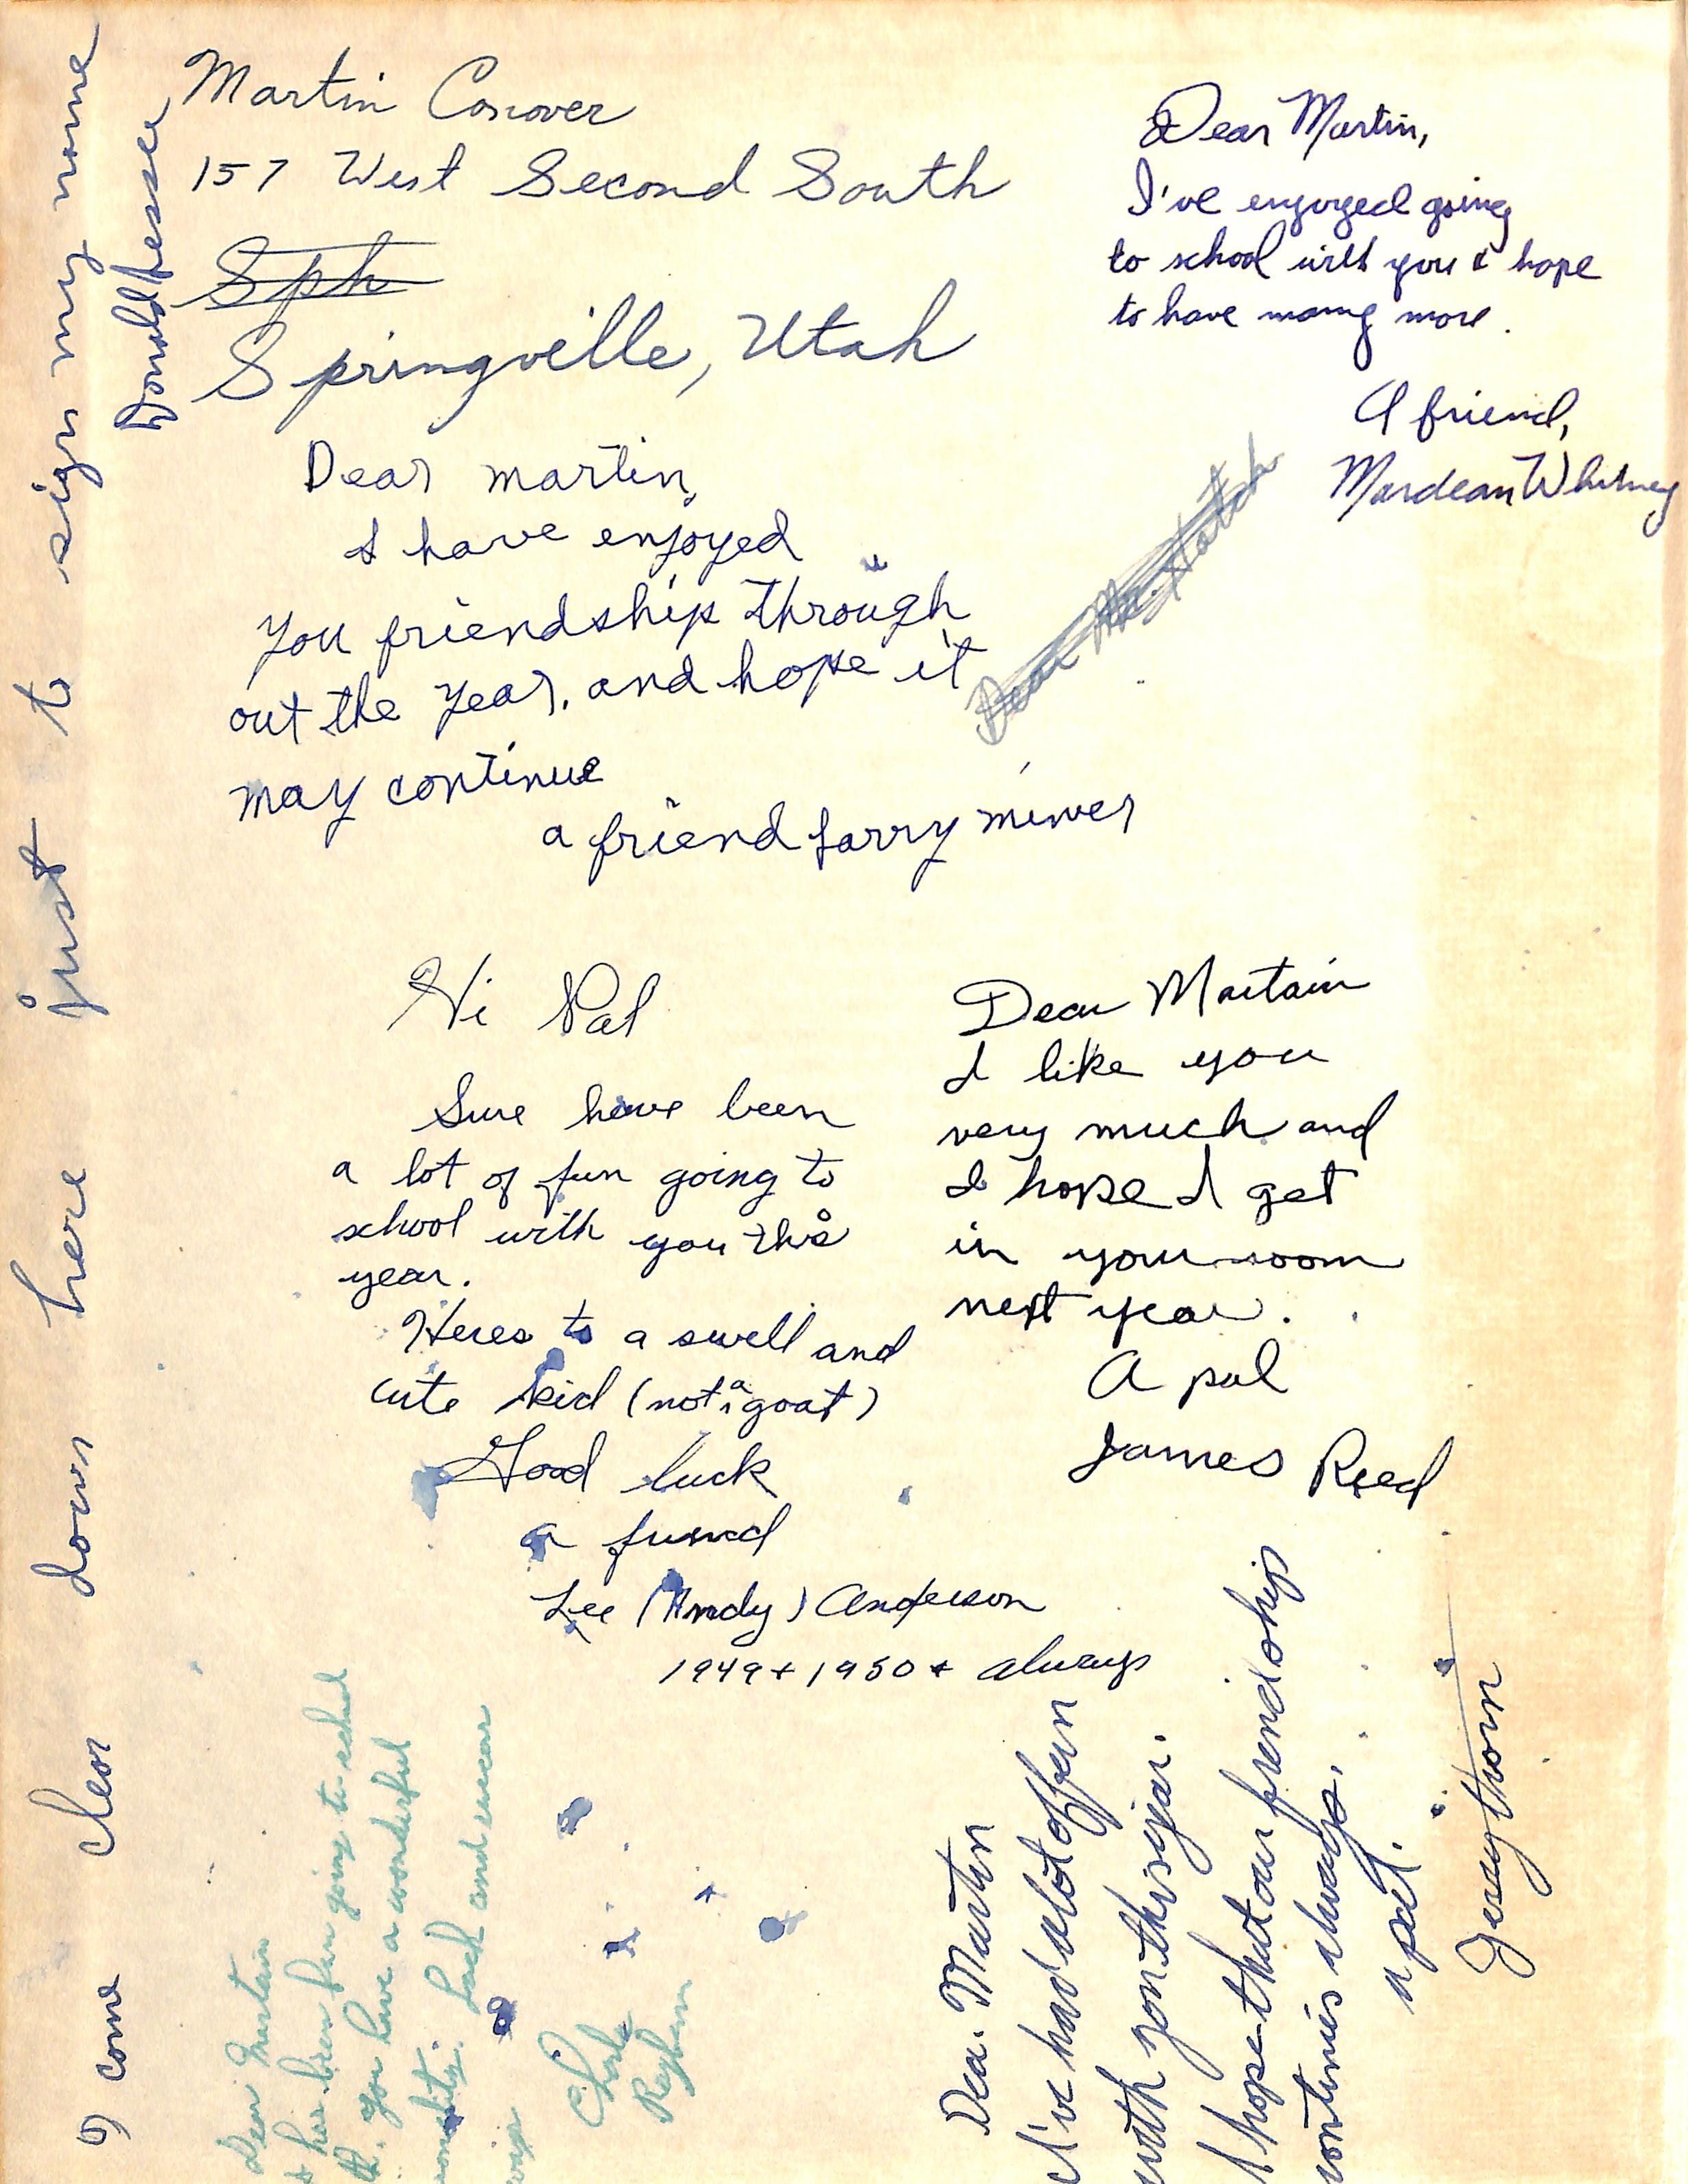 Martin Conover
157 West Second South
Sph
Springville, Utah
Dear Martin,
I've enjoyed going
to school with you & hope
to have many more.
A friend,
Mardean Whitney
Dear martin,
I have enjoyed
you friendship through
out the year, and hope it
may continue
a friend Larry miner
Dear
Hi Pal
Sure have been
a lot of fun going to
school with you this
year.
Heres to a swell and
cute kid (not a goat)
Good luck
a friend
Lee (Andy) Anderson
1949 + 1950 + always
Dear Martain
I like you
very much and
I hope I get
in your room
next year.
A pal
James Reed
I come clear down here just to sign my name
Donald
Dear Martin
has been fun going to school
You have a wonderful
Luck and
Dea. Martin
I've had alot offun
with you this year.
I hope that our friendship
continues always.
a pal.